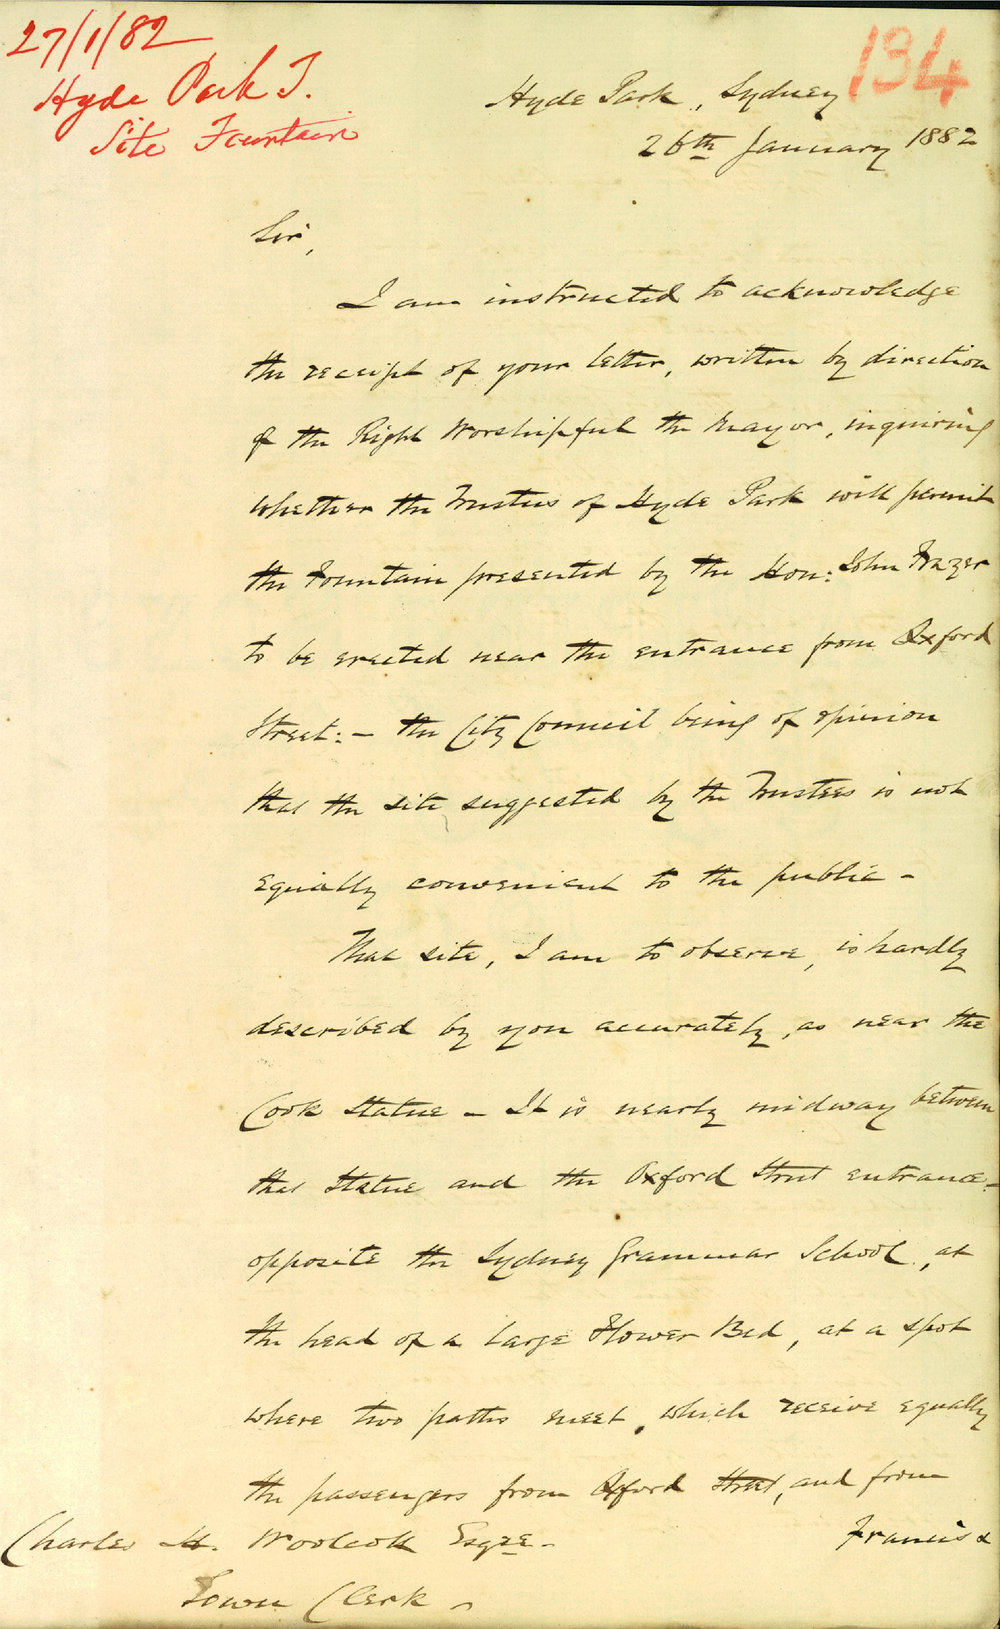 27/1/82
Hyde Park T.
Site Fountain
134
Hyde Park, Sydney
26th January 1882
Sir,
I am instructed to acknowledge
the receipt of your letter, written by direction
of the Right Worshipful the Mayor, inquiring
whether the Trustees of Hyde Park will permit
the Fountain presented by the Hon: John Frazer
to be erected near the entrance from Oxford
Street:— the City Council being of opinion
that the site suggested by the Trustees is not
equally convenient to the public—
That site, I am to observe, is hardly
described by you accurately, as near the
Cook Statue— It is nearly midway between
that Statue and the Oxford Street entrance—
opposite the Sydney Grammar School, at
the head of a large Flower Bed, at a spot
where two paths meet, which receive equally
the passengers from Oxford Street, and from
Francis &
Charles H. Woolcott Esqre—
Town Clerk—